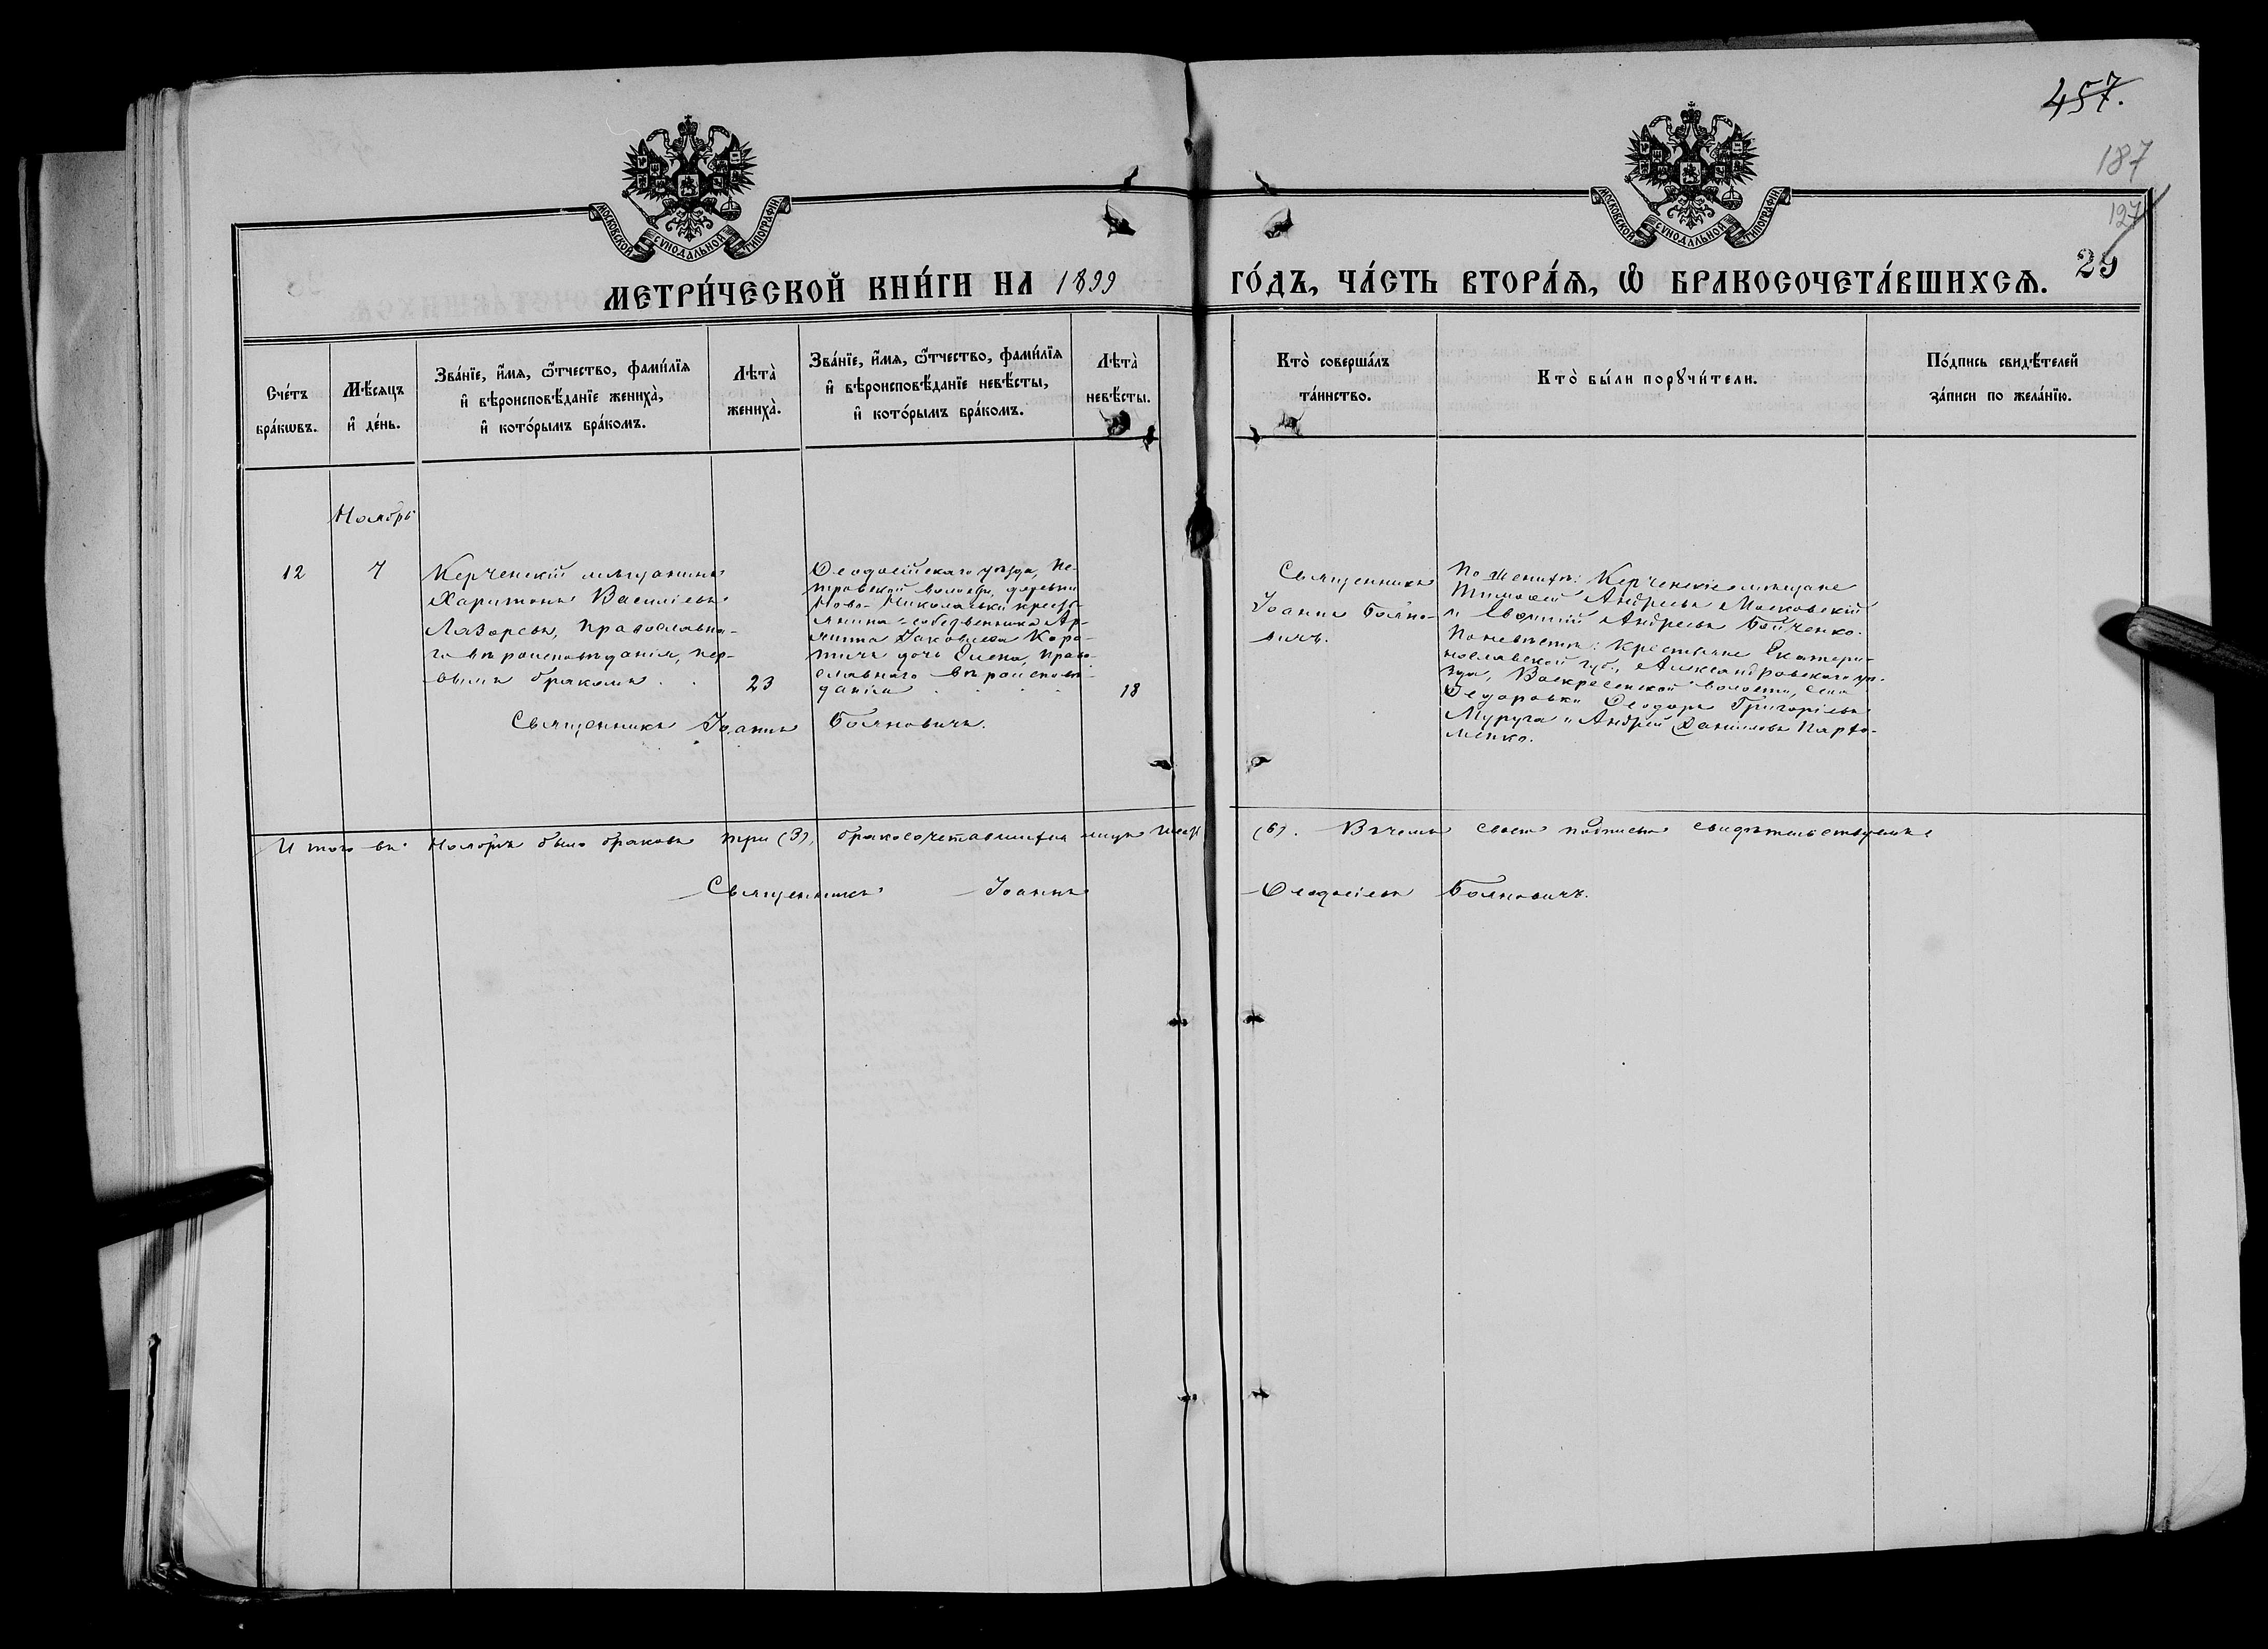 457.
187
127
25
МОСКОВСКОЙ СѴНОДАЛЬНОЙ ТИПОГРАФІИ
МОСКОВСКОЙ СѴНОДАЛЬНОЙ ТИПОГРАФІИ
МЕТРИ́ЧЕСКОЙ КНИ́ГИ НА 1899 ГО́ДЪ, ЧА́СТЬ ВТОРА́Ѧ, Ѿ БРАКОСОЧЕТА́ВШИХСѦ.
Сче́тъ
бра́кѡвъ.
Мѣ́сѧцъ
и҆ де́нь.
Зва́нїе, и҆́мѧ, ѻ҆́тчество, фами́лїѧ
и҆ вѣроисповѣ́данїе жениха̀,
и҆ кото́рымъ бра́комъ.
Лѣ́та̀
жениха̀.
Зва́нїе, и҆́мѧ, ѻ҆́тчество, фами́лїѧ
и҆ вѣроисповѣ́данїе невѣ́сты,
и҆ кото́рымъ бра́комъ.
Лѣ́та̀
невѣ́сты.
Кто̀ соверша́лъ
та́инство.
Кто̀ бы́ли порꙋчи́тели.
По́дпись свидѣ́телей
за́писи по жела́нїю.
Ноябрь
12
7
Керченскій мѣщанинъ
Харитонъ Васильевъ
Лазаревъ, Православна-
го вѣроисповѣданія, пер-
вымъ бракомъ . .
23
Ѳеодосійскаго уѣзда, Пе-
тровской волости, деревни
Ново-Николаевки кресть-
янина-собственника Ар-
хиппа Іаковлева Коро-
тича дочь Елена, Право-
славнаго вѣроисповѣ-
данія . . . .
18
Священникъ Іоаннъ Бояновичъ.
Священникъ
Іоаннъ Бояно-
вичъ.
По женихѣ: Керченскіе мѣщане
Тимоѳей Андреевъ Московскій
и Евѳимій Андреевъ Бойченко.
По невѣстѣ: Крестьяне Екатери-
нославской губ., Александровскаго уѣ-
зда, Воскресенской волости, села
Ѳедоровки Ѳеодоръ Григорьевъ
Муруга и Андрей Даніиловъ Пархо-
менко.
И того въ Ноябрѣ было браковъ три (3), бракосочетавшихся лицъ шесть (6). В чемъ своею подписью свидѣтельствуемъ
Священникъ Іоаннъ Ѳеодосіевъ Бояновичъ.